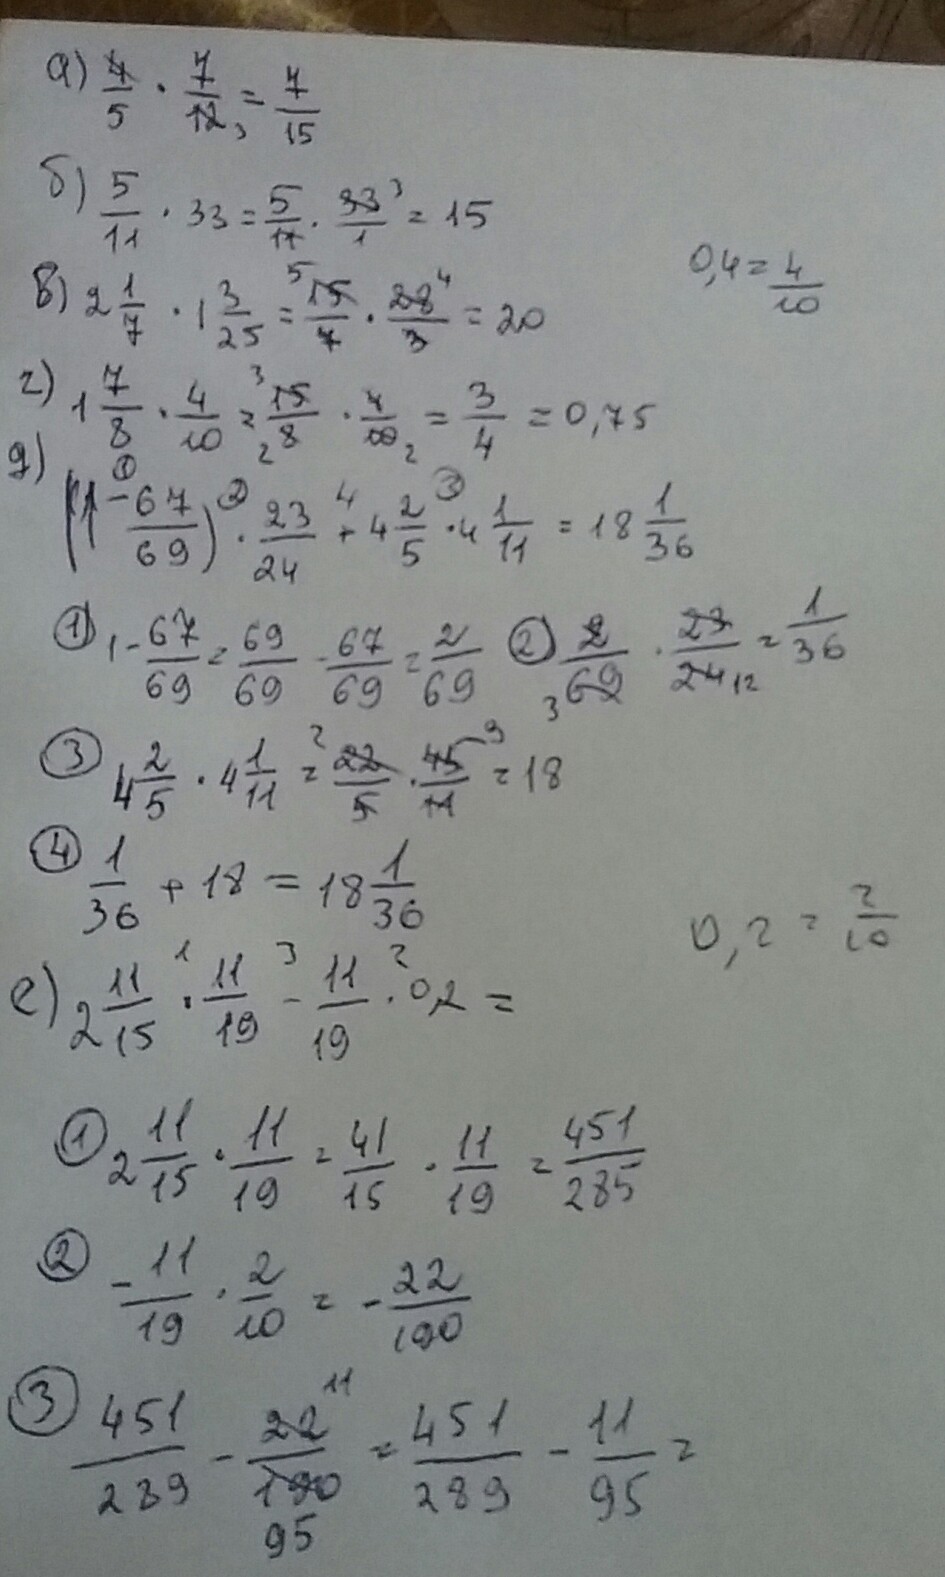 а) 4/5 · 7/12 3 = 7/15
б) 5/11 · 33 = 5/11 · 33/1 3 = 15
0,4 = 4/10
в) 2 1/7 · 1 3/25 = 5 15/7 · 28/3 4 = 20
г) 1 7/8 · 4/10 = 3 15/8 2 · 4/10 2 = 3/4 = 0,75
д) (1 - 67/69) · 23/24 + 4 2/5 · 4 1/11 = 18 1/36
① 1 - 67/69 = 69/69 - 67/69 = 2/69 ② 2/69 3 · 23/24 12 = 1/36
③ 4 2/5 · 4 1/11 = 2 22/5 · 45/11 9 = 18
④ 1/36 + 18 = 18 1/36
0,2 = 2/10
е) 2 11/15 · 11/19 - 11/19 · 0,2 =
① 2 11/15 · 11/19 = 41/15 · 11/19 = 451/285
② - 11/19 · 2/10 = - 22/190
③ 451/289 - 22/190 11 95 = 451/289 - 11/95 =